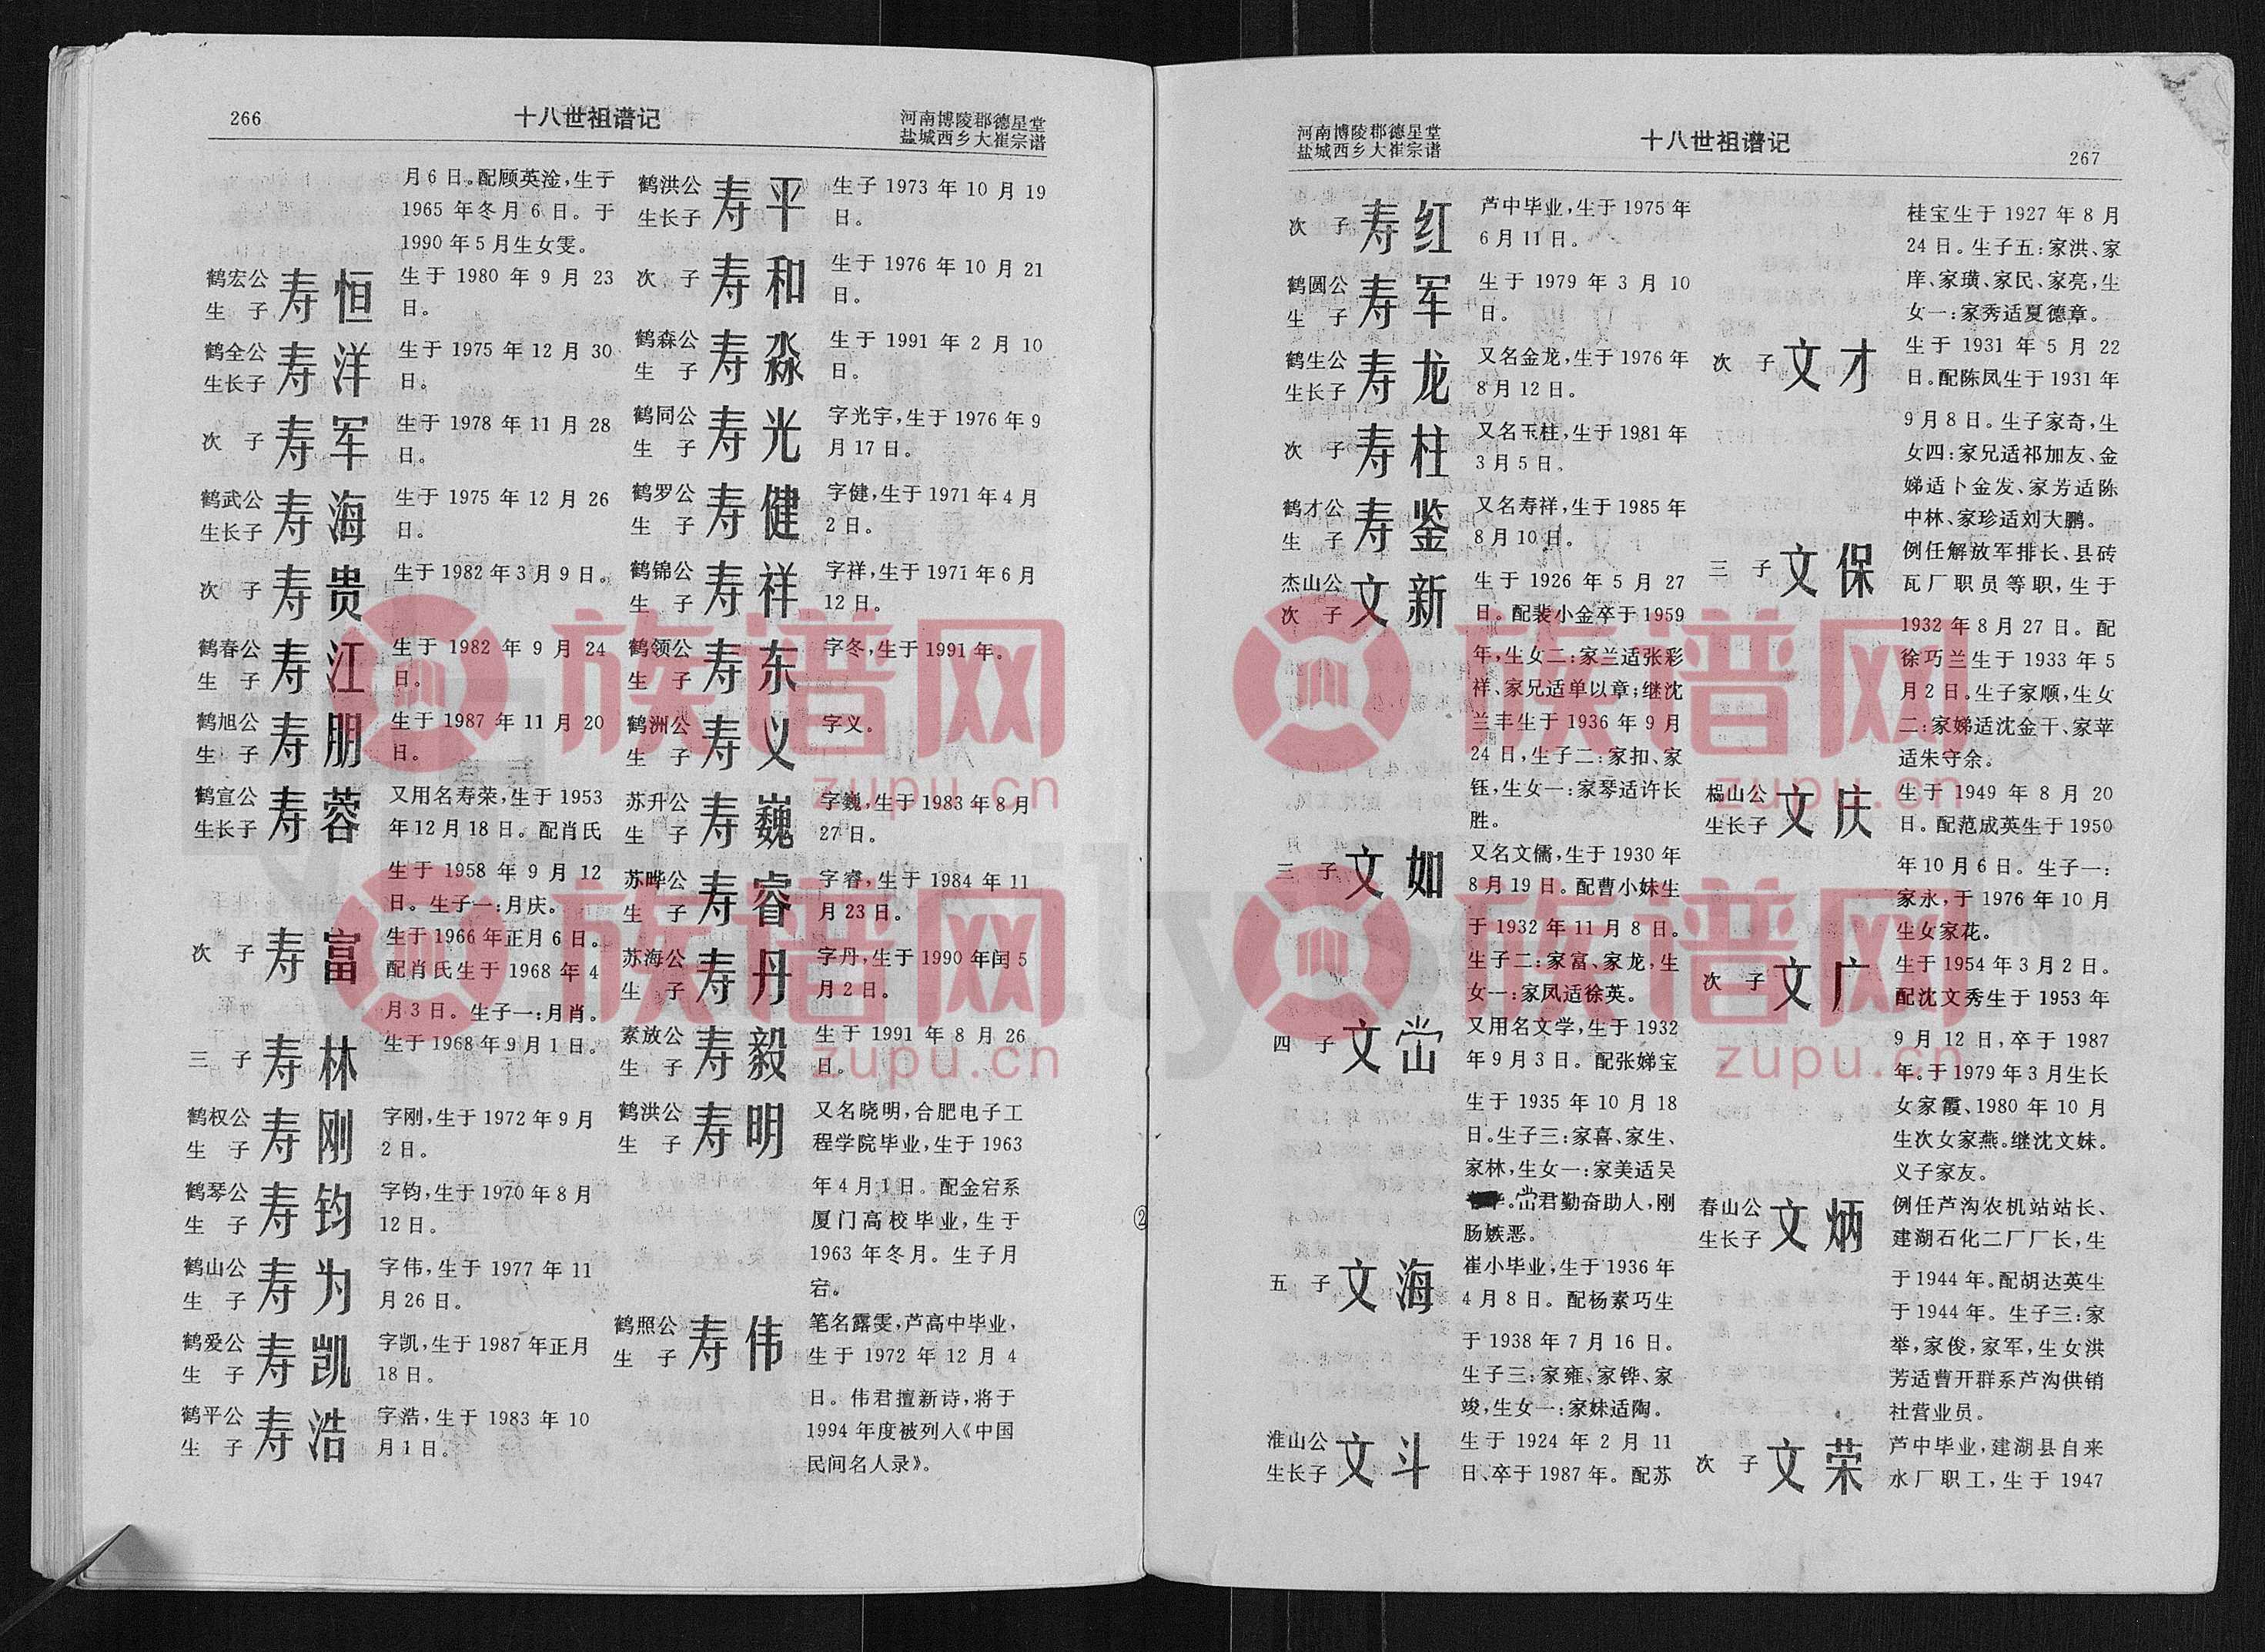 266
十八世祖谱记
河南博陵郡德星堂
盐城西乡大崔宗谱
月6日。配顾英淦,生于
1965年冬月6日。于
1990年5月生女雯。
鹤宏公
生 子
寿恒
生于1980年9月23
日。
鹤全公
生长子
寿洋
生于1975年12月30
日。
次 子
寿军
生于1978年11月28
日。
鹤武公
生长子
寿海
生于1975年12月26
日。
次 子
寿贵
生于1982年3月9日。
鹤春公
生 子
寿江
生于1982年9月24
日。
鹤旭公
生 子
寿朋
生于1987年11月20
日。
鹤宣公
生长子
寿蓉
又用名寿荣,生于1953
年12月18日。配肖氏
生于1958年9月12
日。生子一:月庆。
次 子
寿富
生于1966年正月6日。
配肖氏生于1968年4
月3日。生子一:月肖。
三 子
寿林
生于1968年9月1日。
鹤权公
生 子
寿刚
字刚,生于1972年9月
2日。
鹤琴公
生 子
寿钧
字钧,生于1970年8月
12日。
鹤山公
生 子
寿为
字伟,生于1977年11
月26日。
鹤爱公
生 子
寿凯
字凯,生于1987年正月
18日。
鹤平公
生 子
寿浩
字浩,生于1983年10
月1日。
鹤洪公
生长子
寿平
生子1973年10月19
日。
次 子
寿和
生于1976年10月21
日。
鹤森公
生 子
寿淼
生于1991年2月10
日。
鹤同公
生 子
寿光
字光宇,生于1976年9
月17日。
鹤罗公
生 子
寿健
字健,生于1971年4月
2日。
鹤锦公
生 子
寿祥
字祥,生于1971年6月
12日。
鹤领公
生 子
寿东
字冬,生于1991年。
鹤洲公
生 子
寿义
字义。
苏升公
生 子
寿巍
字巍,生于1983年8月
27日。
苏晔公
生 子
寿睿
字睿,生于1984年11
月23日。
苏海公
生 子
寿丹
字丹,生于1990年闰5
月2日。
素放公
生 子
寿毅
生于1991年8月26
日。
鹤洪公
生 子
寿明
又名晓明,合肥电子工
程学院毕业,生于1963
年4月1日。配金宕系
厦门高校毕业,生于
1963年冬月。生子月
宕。
鹤照公
生 子
寿伟
笔名露雯,芦高中毕业,
生于1972年12月4
日。伟君擅新诗,将于
1994年度被列入《中国
民间名人录》。
②
河南博陵郡德星堂
盐城西乡大崔宗谱
十八世祖谱记
267
次 子
寿红
芦中毕业,生于1975年
6月11日。
鹤圆公
生 子
寿军
生于1979年3月10
日。
鹤生公
生长子
寿龙
又名金龙,生于1976年
8月12日。
次 子
寿柱
又名玉柱,生于1981年
3月5日。
鹤才公
生 子
寿鉴
又名寿祥,生于1985年
8月10日。
杰山公
次 子
文新
生于1926年5月27
日。配裴小金卒于1959
年,生女二:家兰适张彩
祥、家兄适单以章;继沈
兰丰生于1936年9月
24日,生子二:家扣、家
钰,生女一:家琴适许长
胜。
三 子
文如
又名文儒,生于1930年
8月19日。配曹小妹生
于1932年11月8日。
生子二:家富、家龙,生
女一:家凤适徐英。
四 子
文峃
又用名文学,生于1932
年9月3日。配张娣宝
生于1935年10月18
日。生子三:家喜、家生、
家林,生女一:家美适吴
。峃君勤奋助人,刚
肠嫉恶。
五 子
文海
崔小毕业,生于1936年
4月8日。配杨素巧生
于1938年7月16日。
生子三:家雍、家铧、家
竣,生女一:家妹适陶。
淮山公
生长子
文斗
生于1924年2月11
日、卒于1987年。配苏
桂宝生于1927年8月
24日。生子五:家洪、家
庠、家璜、家民、家亮,生
女一:家秀适夏德章。
次 子
文才
生于1931年5月22
日。配陈凤生于1931年
9月8日。生子家奇,生
女四:家兄适祁加友、金
娣适卜金发、家芳适陈
中林、家珍适刘大鹏。
三 子
文保
例任解放军排长、县砖
瓦厂职员等职,生于
1932年8月27日。配
徐巧兰生于1933年5
月2日。生子家顺,生女
二:家娣适沈金干、家苹
适朱守余。
山公
生长子
文庆
生于1949年8月20
日。配范成英生于1950
年10月6日。生子一:
家永,于1976年10月
生女家花。
次 子
文广
生于1954年3月2日。
配沈文秀生于1953年
9月12日,卒于1987
年。于1979年3月生长
女家霞、1980年10月
生次女家燕。继沈文妹。
义子家友。
春山公
生长子
文炳
例任芦沟农机站站长、
建湖石化二厂厂长,生
于1944年。配胡达英生
于1944年。生子三:家
举,家俊,家军,生女洪
芳适曹开群系芦沟供销
社营业员。
次 子
文荣
芦中毕业,建湖县自来
水厂职工,生于1947
族谱网
zupu.cn
族谱网
zupu.cn
族谱网
zupu.cn
族谱网
zupu.cn